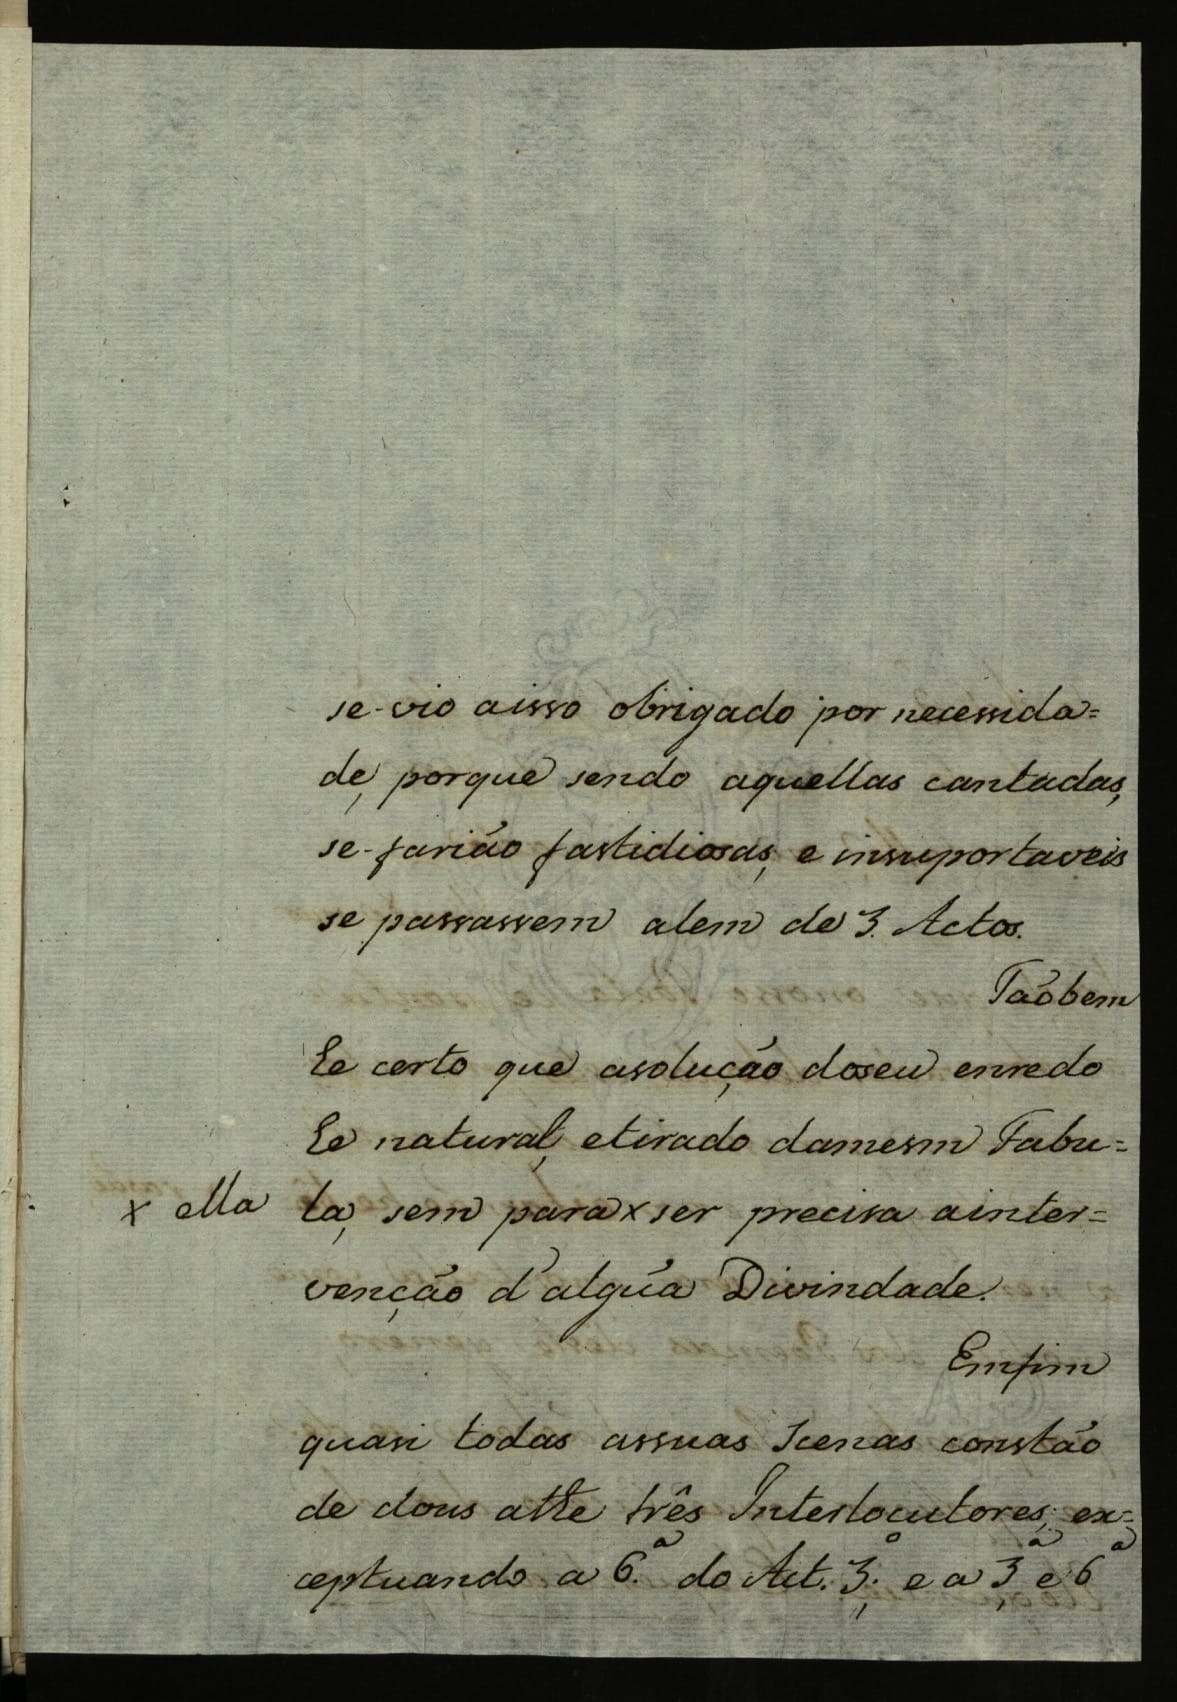 se-vio aisso obrigado por necessida=
de, porque sendo aquellas cantadas,
se-farião fastidiosas, e insuportaveis
se passassem alem de 3. Actos.
Taõbem
he certo que asolução doseu enredo
he natural, etirado damesm Fabu=
x ella
la, sem para x ser precisa ainter=
venção d'algũa Divindade.
Emfim
quasi todas assuas Scenas constão
de dous athe três Interlocutores, ex=
ceptuando a 6.ª do Act. 3.º, e a 3,ª e 6ª